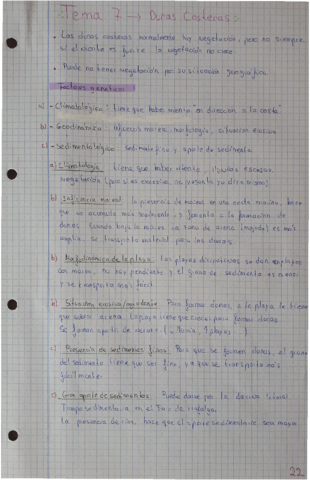 Tema 7 → Dunas Costeras:
• Las dunas costeras normalmente hay vegetación, pero no siempre
si el viento es fuerte la vegetación no crece.
• Puede no tener vegetación por su situación geográfica
Factores genéticos
a) - Climatológico: Tiene que haber viento "en dirección a la costa"
b) - Geodinámica: Influencia mareal, morfología, situación erosiva
c) - Sedimentológico: Sedimentos finos y aporte de sedimento
a) Climatología: Tiene que haber viento, lluvias escasas,
vegetación (pero si es excesiva no permite
b) Influencia mareal: la presencia de mareas en una costa
que se acumula más sedimento, favorece a la formación de
dunas. Cuando baja la marea la zona de arena (mojada) es más
amplia, se transporta material para las dunas.
b) Morfodinámica de la playa: Las playas disipativas se dan
con mareas. No hay pendiente y el grano de sedimento es
y se transporta más fácil.
b) Situación erosiva/ Para formar dunas, a la playa le tiene
que sobrar arena. La playa tiene que crecer para formar dunas
Se forman aparte de aportes ( ríos, playas...)
c) Presencia de sedimentos finos: Para que se formen dunas, el grano
del sedimento tiene que ser fino, ya que se transporta más
fácilmente.
c) Gran aporte de sedimentos: Puede darse por la deriva litoral
Transp. sedimento a
la presencia de ríos hace que el aporte sedimentario sea mayor.
22